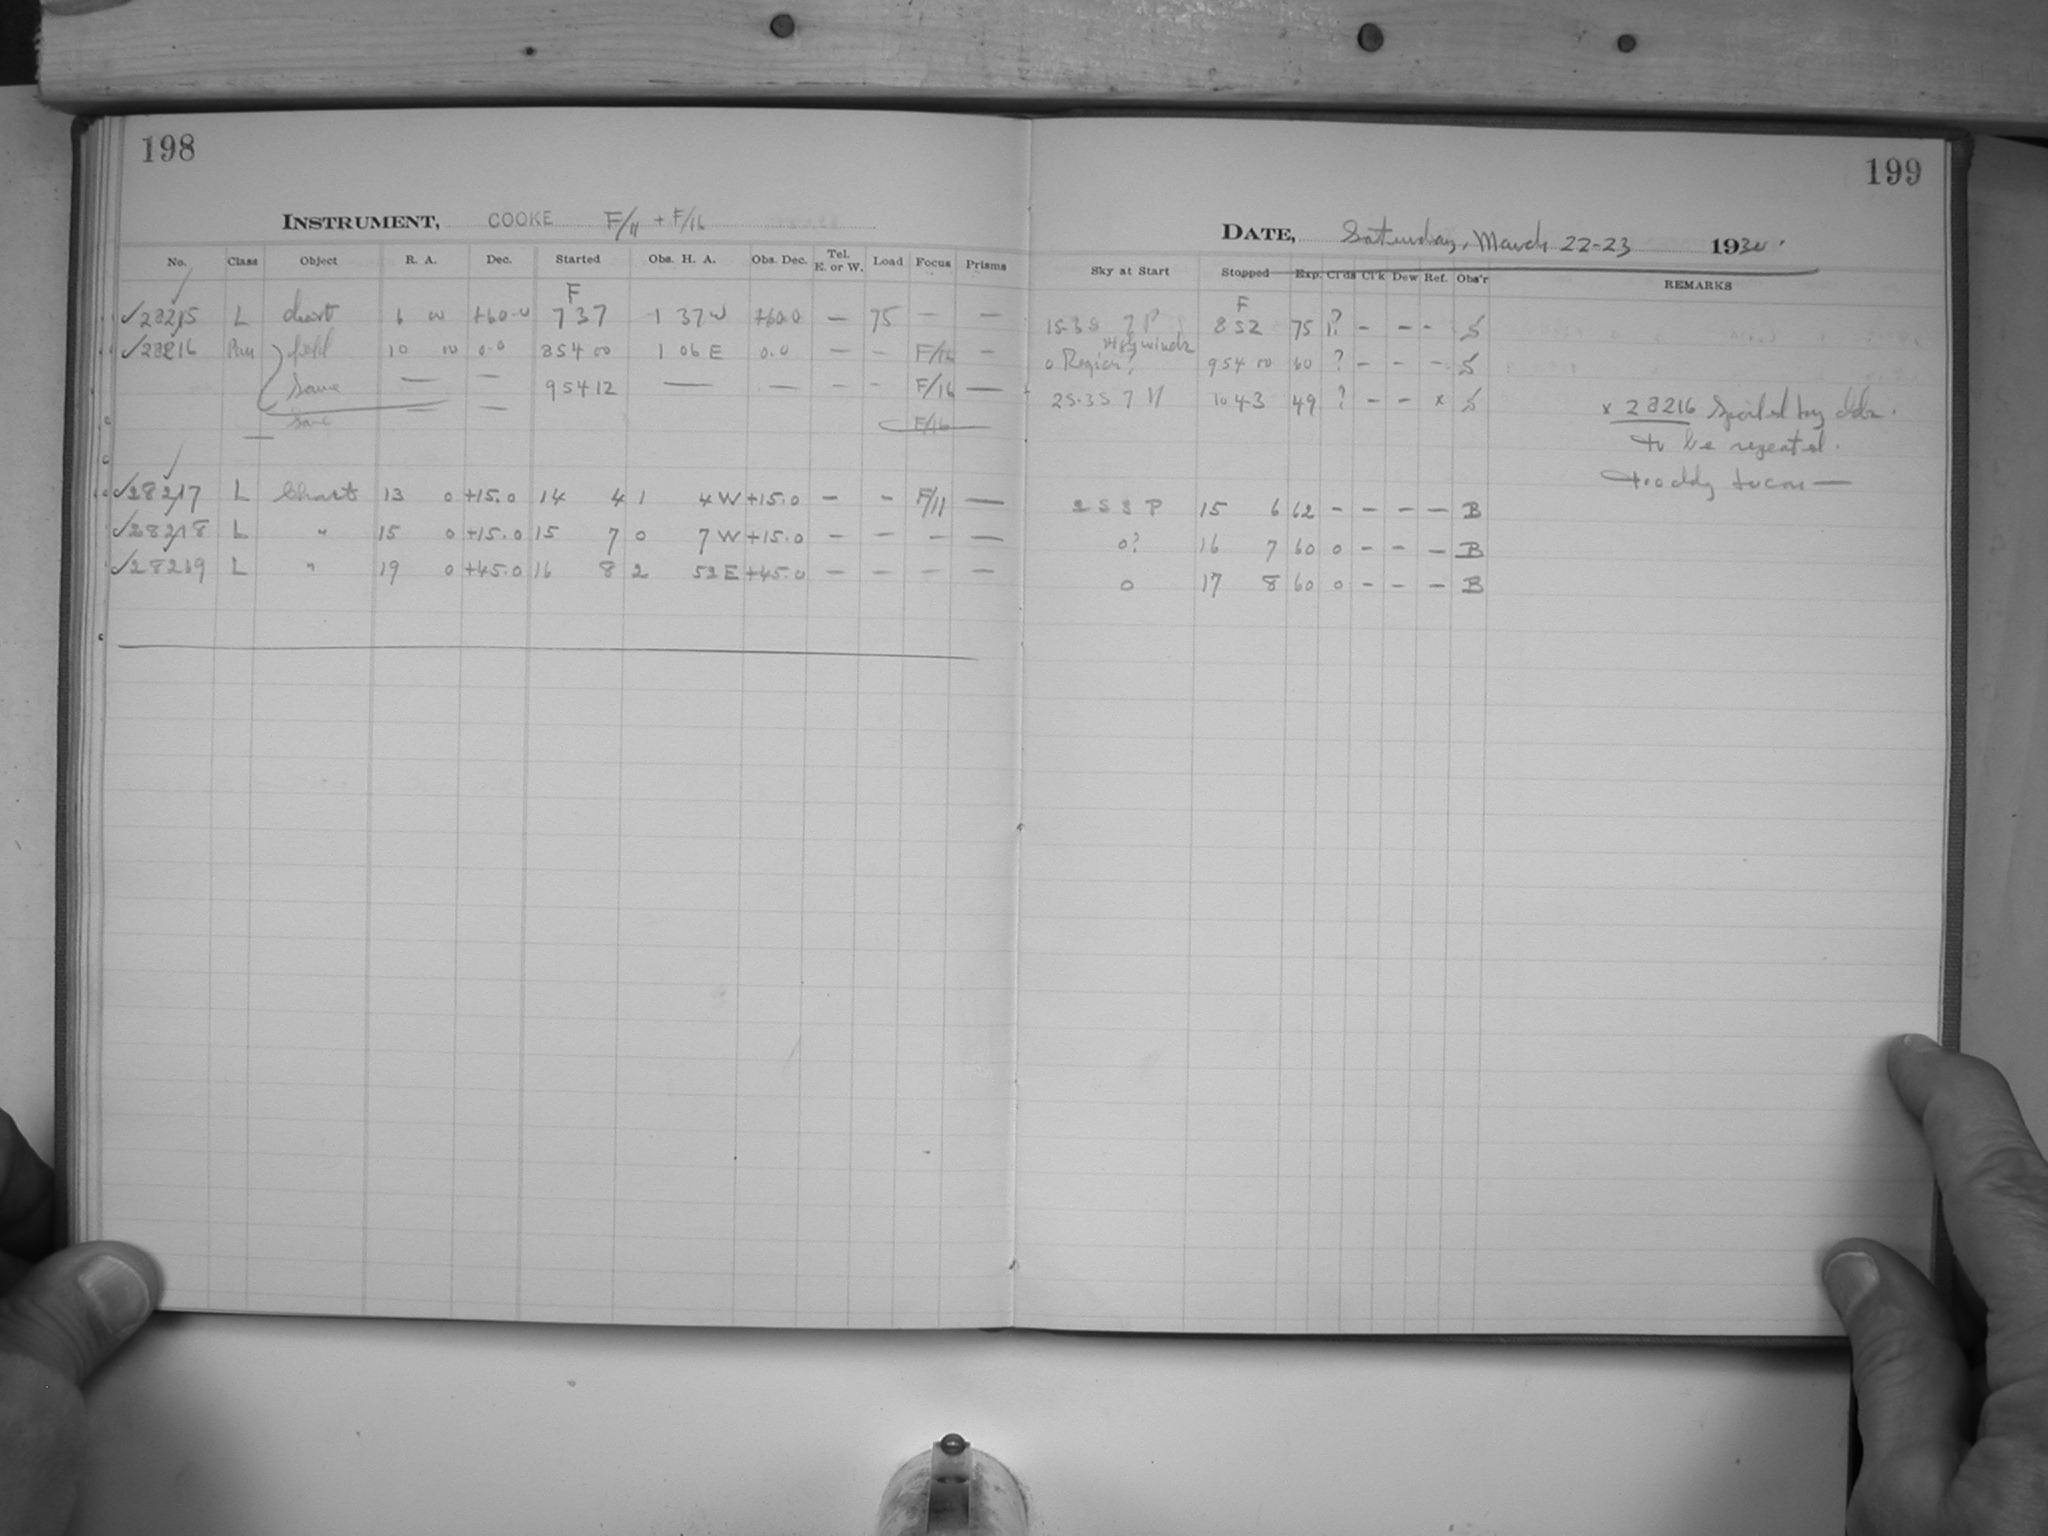 198
INSTRUMENT, COOKE F/11 + F/16
No. Class Object R. A. Dec. Started Obs. H. A. Obs. Dec. Tel. E. or W. Load Focus Prisms
F
✓28215 L chart 6 00 +60.0 7 37 1 37 W +60.0 — 75 — —
✓28216 field 10 00 0.0 8 54 00 1 06 E 0.0 — - F/16 —
Same — — 9 54 12 — — - - F/16 —
Same — — F/16
✓28217 L Chart 13 0 +15.0 14 4 1 4 W +15.0 — - F/11 —
✓28218 L " 15 0 +15.0 15 7 0 7 W +15.0 — — — —
✓28219 L " 19 0 +45.0 16 8 2 52 E +45.0 — — — —
199
DATE, Saturday, March 22-23 1930.
Sky at Start Stopped Exp. Cl'ds Cl'k Dew Ref. Obs'r REMARKS
F
8 52 75 - - - S
9 54 00 60 ? - - - S
2S.3S 7 10 43 49 ? - - x S
x 28216 Spoiled by
to be repeated.
2 S 3 P 15 6 62 - - - — B
0? 16 7 60 0 - - — B
0 17 8 60 0 - - — B